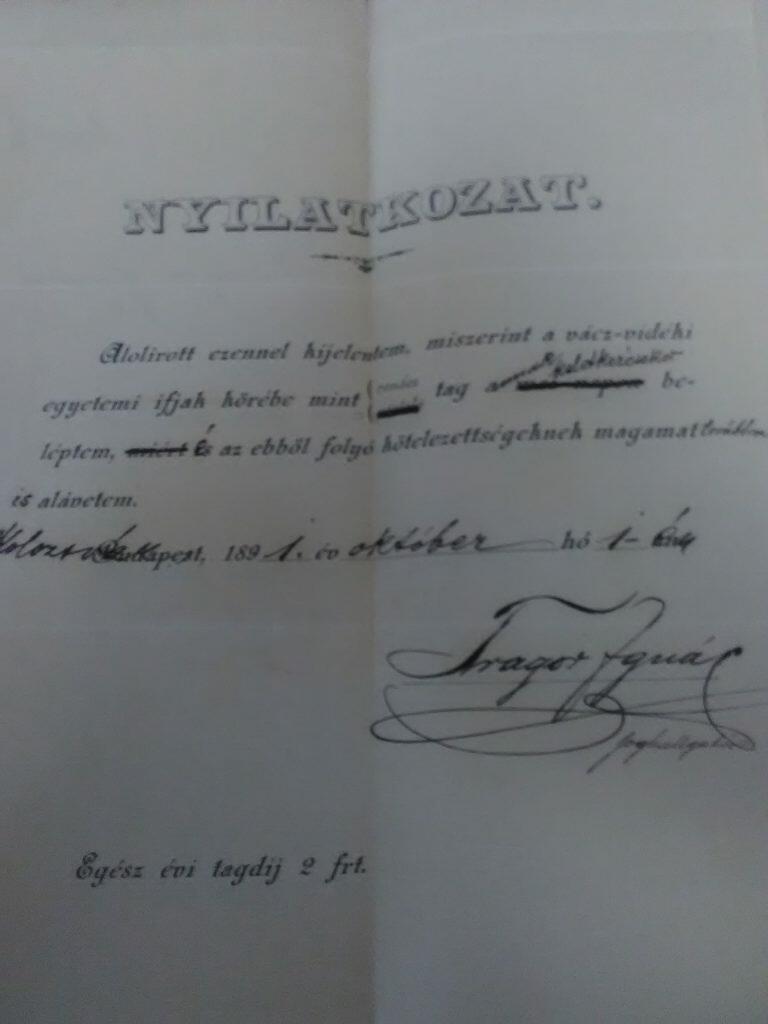 NYILATKOZAT.
Alolirott ezennel kijelentem, miszerint a vácz-vidéki
egyetemi ifjak körébe mint rendes tag annak keletkezésekor be-
léptem, miért és az ebből folyó kötelezettségeknek magamat továbbra
is alávetem.
Kolozsvár Budapest, 1891. év október hó 1-én
Tragor Ignác
joghallgató
Egész évi tagdíj 2 frt.